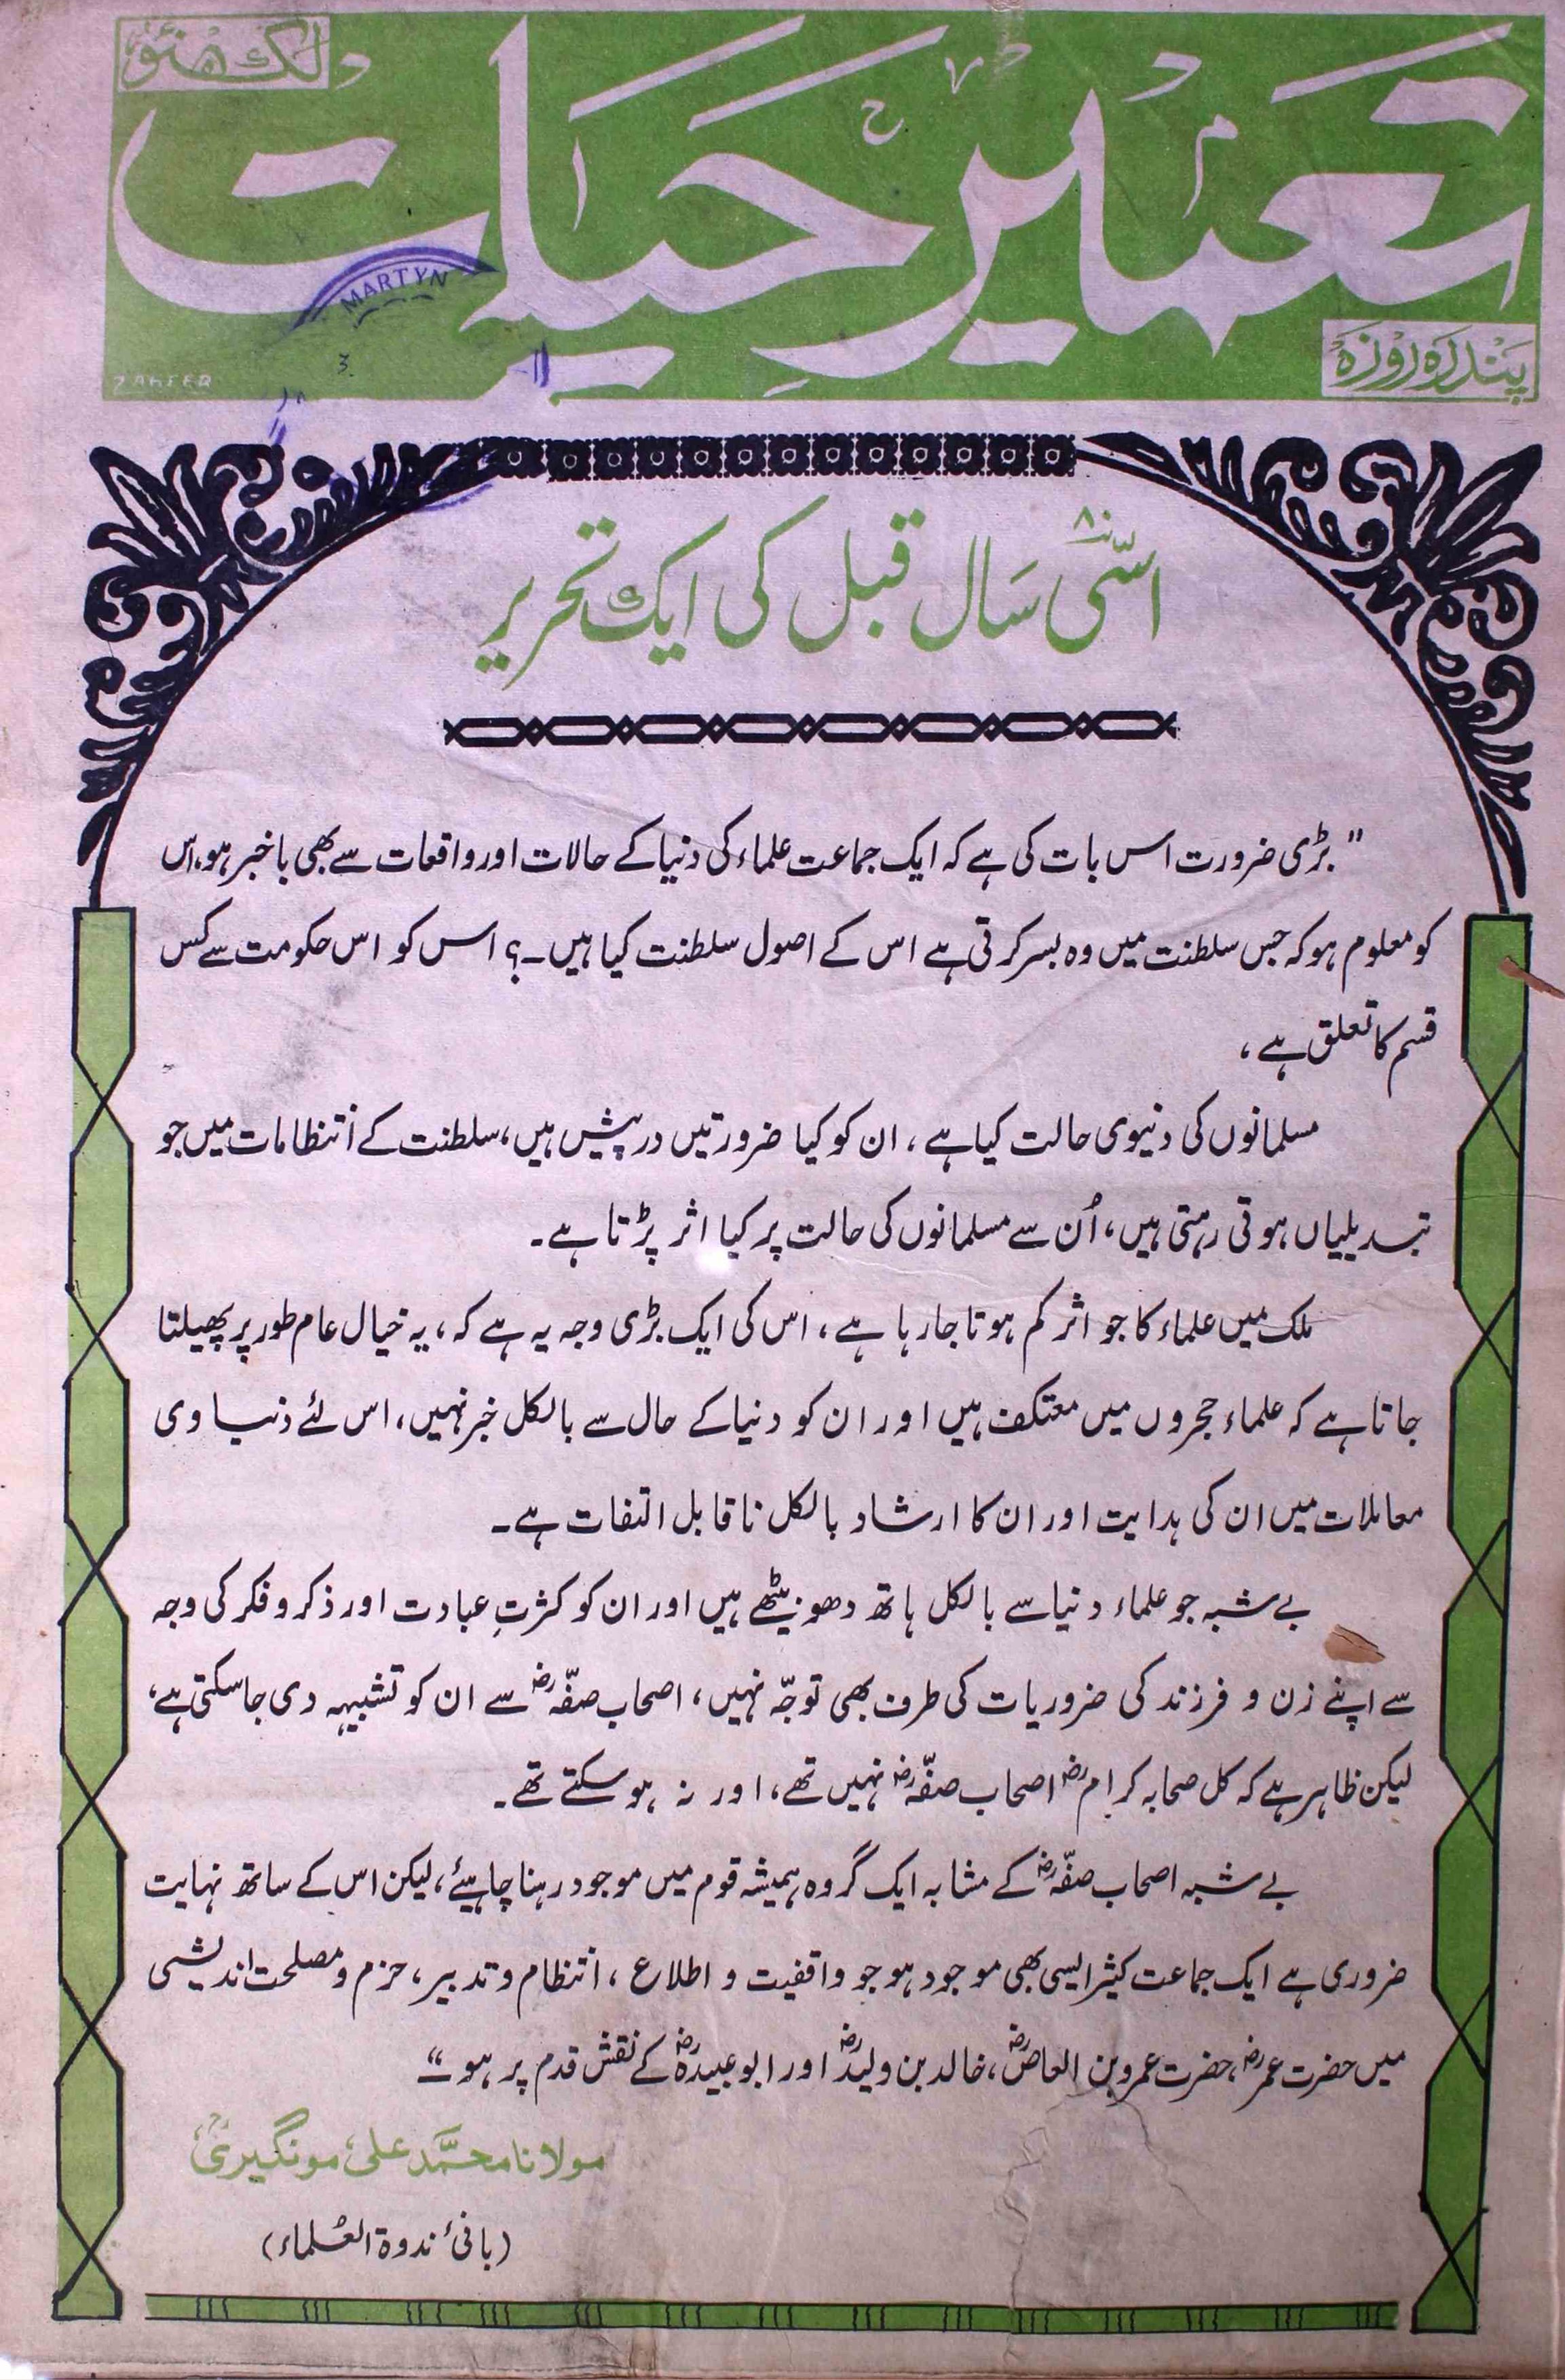 لکھنؤ
تعمیر حیات
پندرہ روزہ
MARTYN
ZAHEER
اسّی ۸۰ سَال قبل کی ایک تحریر
"بڑی ضرورت اس بات کی ہے کہ ایک جماعت علماء کی دنیا کے حالات اور واقعات سے بھی باخبر ہو، اس
کو معلوم ہو کہ جس سلطنت میں وہ بسر کرتی ہے اس کے اصول سلطنت کیا ہیں۔؟ اس کو اس حکومت سے کس
قسم کا تعلق ہے،
مسلمانوں کی دنیوی حالت کیا ہے، ان کو کیا ضرورتیں درپیش ہیں، سلطنت کے انتظامات میں جو
تبدیلیاں ہوتی رہتی ہیں، اُن سے مسلمانوں کی حالت پر کیا اثر پڑتا ہے۔
ملک میں علماء کا جو اثر کم ہوتا جا رہا ہے، اس کی ایک بڑی وجہ یہ ہے کہ، یہ خیال عام طور پر پھیلتا
جاتا ہے کہ علماء حجروں میں معتکف ہیں اور ان کو دنیا کے حال سے بالکل خبر نہیں، اس لئے دنیاوی
معاملات میں ان کی ہدایت اور ان کا ارشاد بالکل ناقابل التفات ہے۔
بے شبہ جو علماء دنیا سے بالکل ہاتھ دھو بیٹھے ہیں اور ان کو کثرتِ عبادت اور ذکر و فکر کی وجہ
سے اپنے زن و فرزند کی ضروریات کی طرف بھی توجّہ نہیں، اصحاب صفّہؓ سے ان کو تشبیہہ دی جا سکتی ہے،
لیکن ظاہر ہے کہ کل صحابہ کرامؓ اصحاب صفّہؓ نہیں تھے، اور نہ ہو سکتے تھے۔
بے شبہ اصحاب صفّہؓ کے مشابہ ایک گروہ ہمیشہ قوم میں موجود رہنا چاہیئے، لیکن اس کے ساتھ نہایت
ضروری ہے ایک جماعت کثیر ایسی بھی موجود ہو جو واقفیت و اطلاع، انتظام و تدبیر، حزم و مصلحت اندیشی
میں حضرت عمرؓ، حضرت عمرو بن العاصؓ، خالد بن ولیدؓ اور ابو عبیدہؓ کے نقش قدم پر ہو۔"
مولانا محمَّد علی مونگیریؒ
(بانیٔ ندوۃ العُلماء)